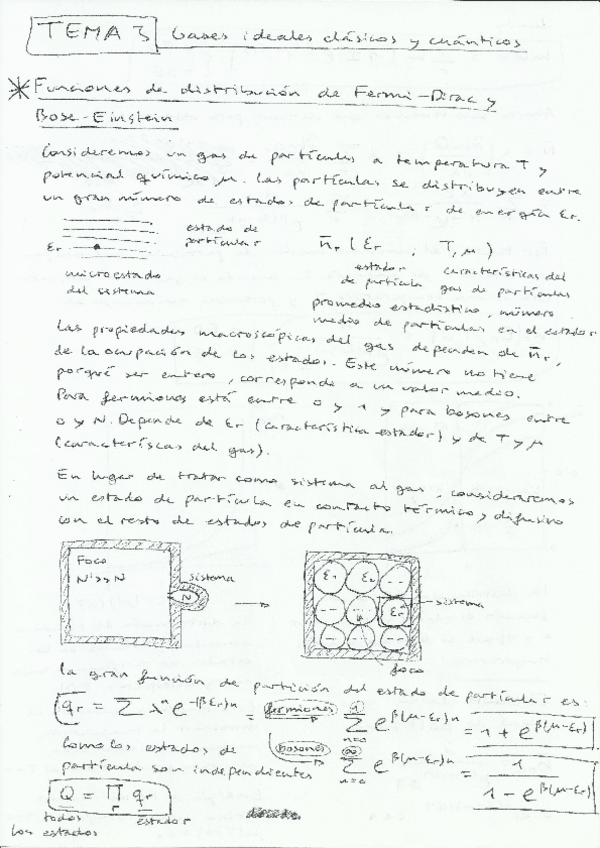 TEMA 3 Gases ideales clásicos y cuánticos
* Funciones de distribución de Fermi-Dirac y
Bose-Einstein
Consideremos un gas de partículas a temperatura T y
potencial químico μ. Las partículas se distribuyen entre
un gran número de estados de partícula r de energía εr.
estado de
partícula r
εr
microestado
del sistema
n̄r (εr, T, μ)
estado r
de partícula
características del
gas de partículas
promedio estadístico, número
medio de partículas en el estado r
Las propiedades macroscópicas del gas dependen de n̄r,
de la ocupación de los estados. Este número no tiene
porqué ser entero, corresponde a un valor medio.
Para fermiones está entre 0 y 1 y para bosones entre
0 y N. Depende de εr (característica estado r) y de T y μ
(caracteríscas del gas).
En lugar de tratar como sistema al gas, consideraremos
un estado de partícula en contacto térmico y difusivo
con el resto de estados de partícula.
Foco
N'>>N
sistema
N
ε1 ε2 ...
... ... εr
... ... ...
sistema
foco
La gran función de partición del estado de partícula r es:
qr = Σ λⁿ e^(-βεr)n = fermiones Σ_{n=0}^{1} e^{β(μ-εr)n} = 1 + e^{β(μ-εr)}
bosones Σ_{n=0}^{∞} e^{β(μ-εr)n} = 1 / (1 - e^{β(μ-εr)})
Como los estados de
partícula son independientes
Q = Π_r qr
todos
los estados
estado r